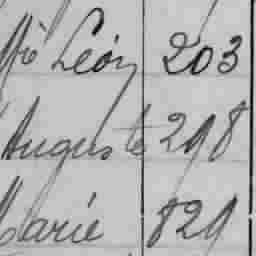 Léon 203
Auguste 298
Marie 829